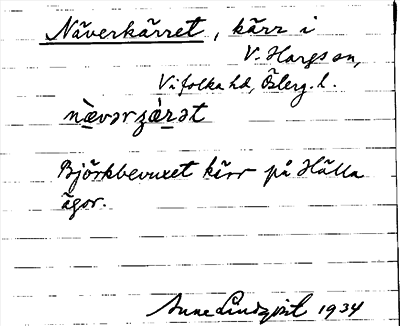 Näverkärret, kärr i
V. Hargs sn,
Vifolka hd, Österg. l.
nævərҙærət
Björkbevuxet kärr på Hälla
ägor.
Anne Lindqvist 1934